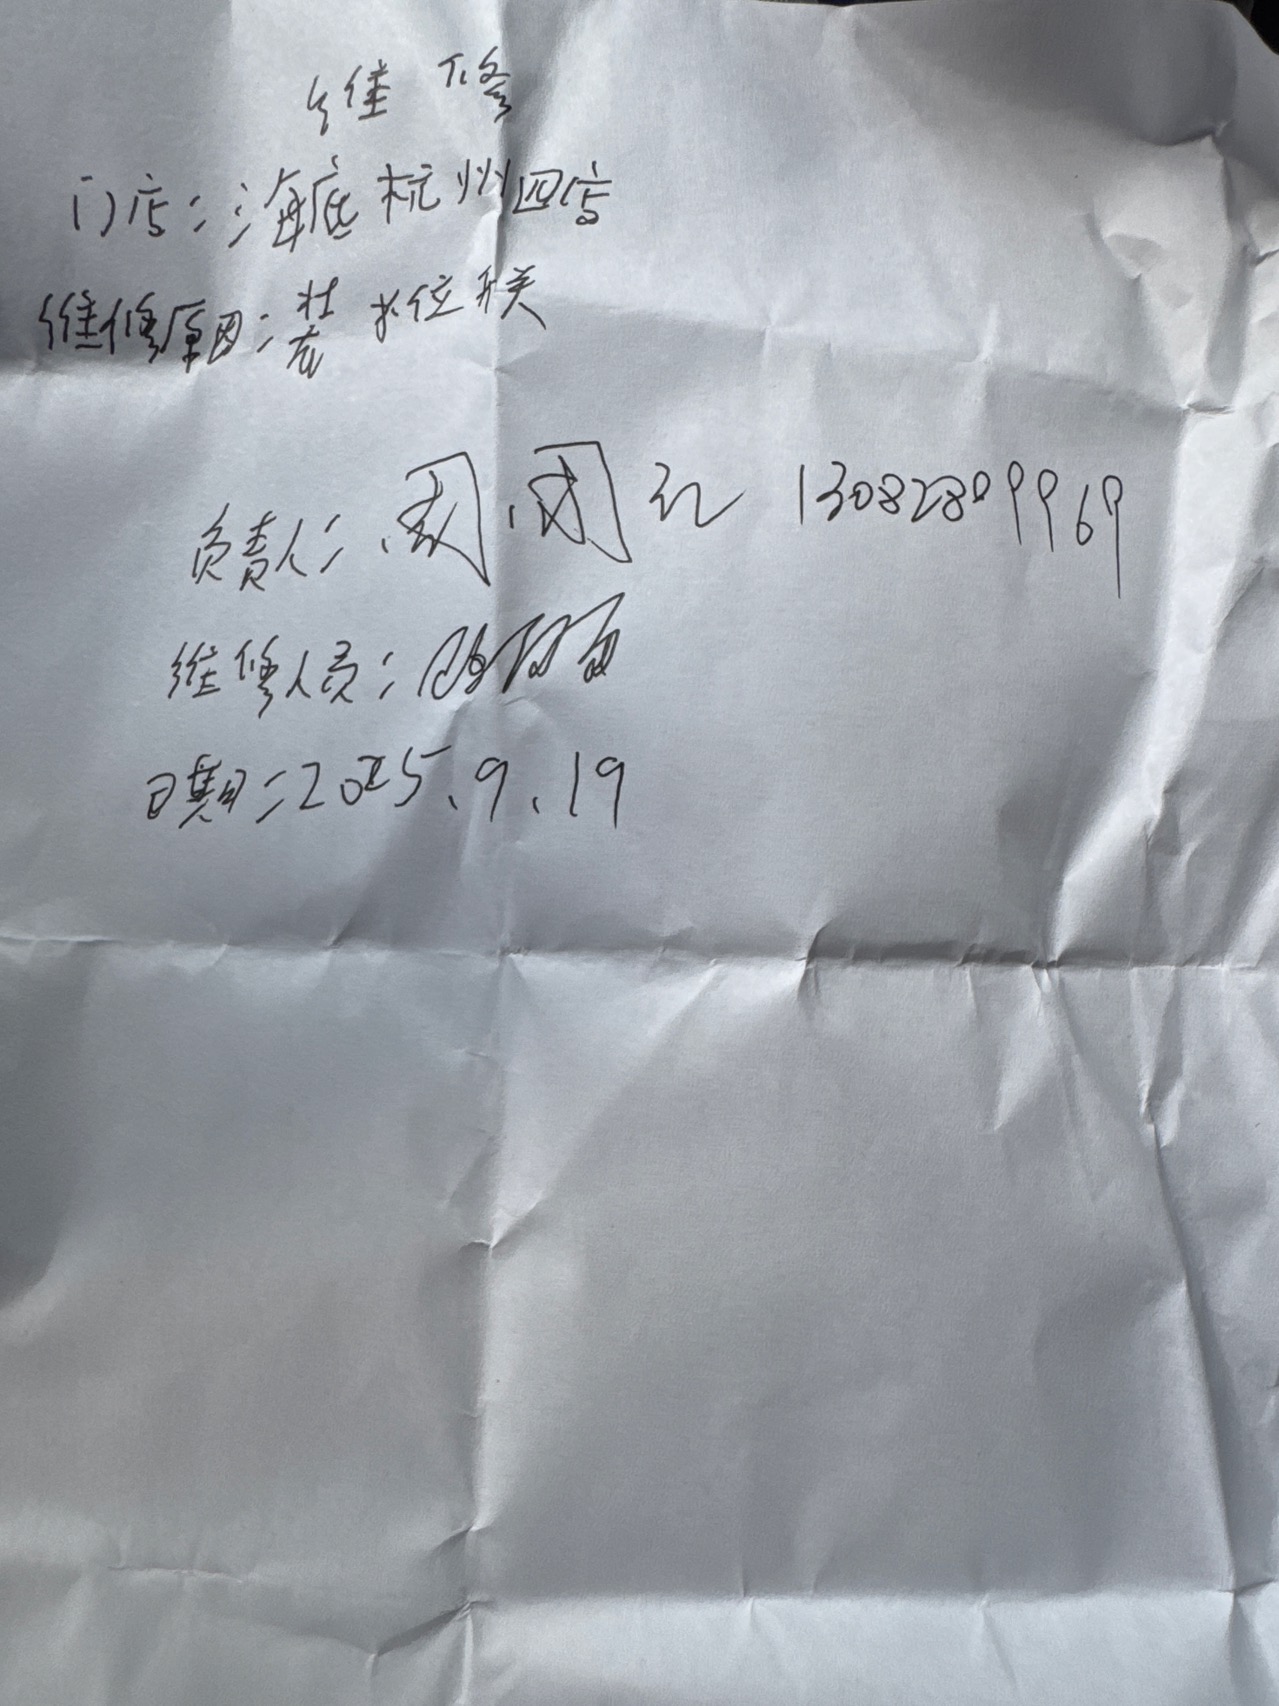 维修
门店：海底杭州四店
维修原因：装水位开关
负责人： 13082809969
维修人员：
日期：2025.9.19